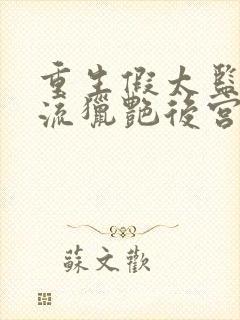 重生假太監
流獵艷後宮
蘇文歡